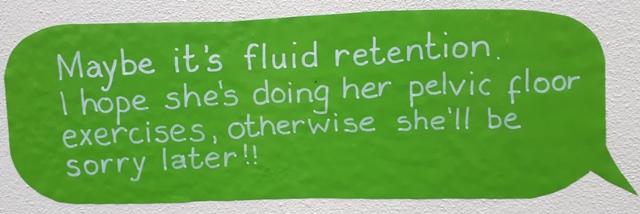 Maybe it's fluid retention.
I hope she's doing her pelvic floor
exercises, otherwise she'll be
sorry later!!